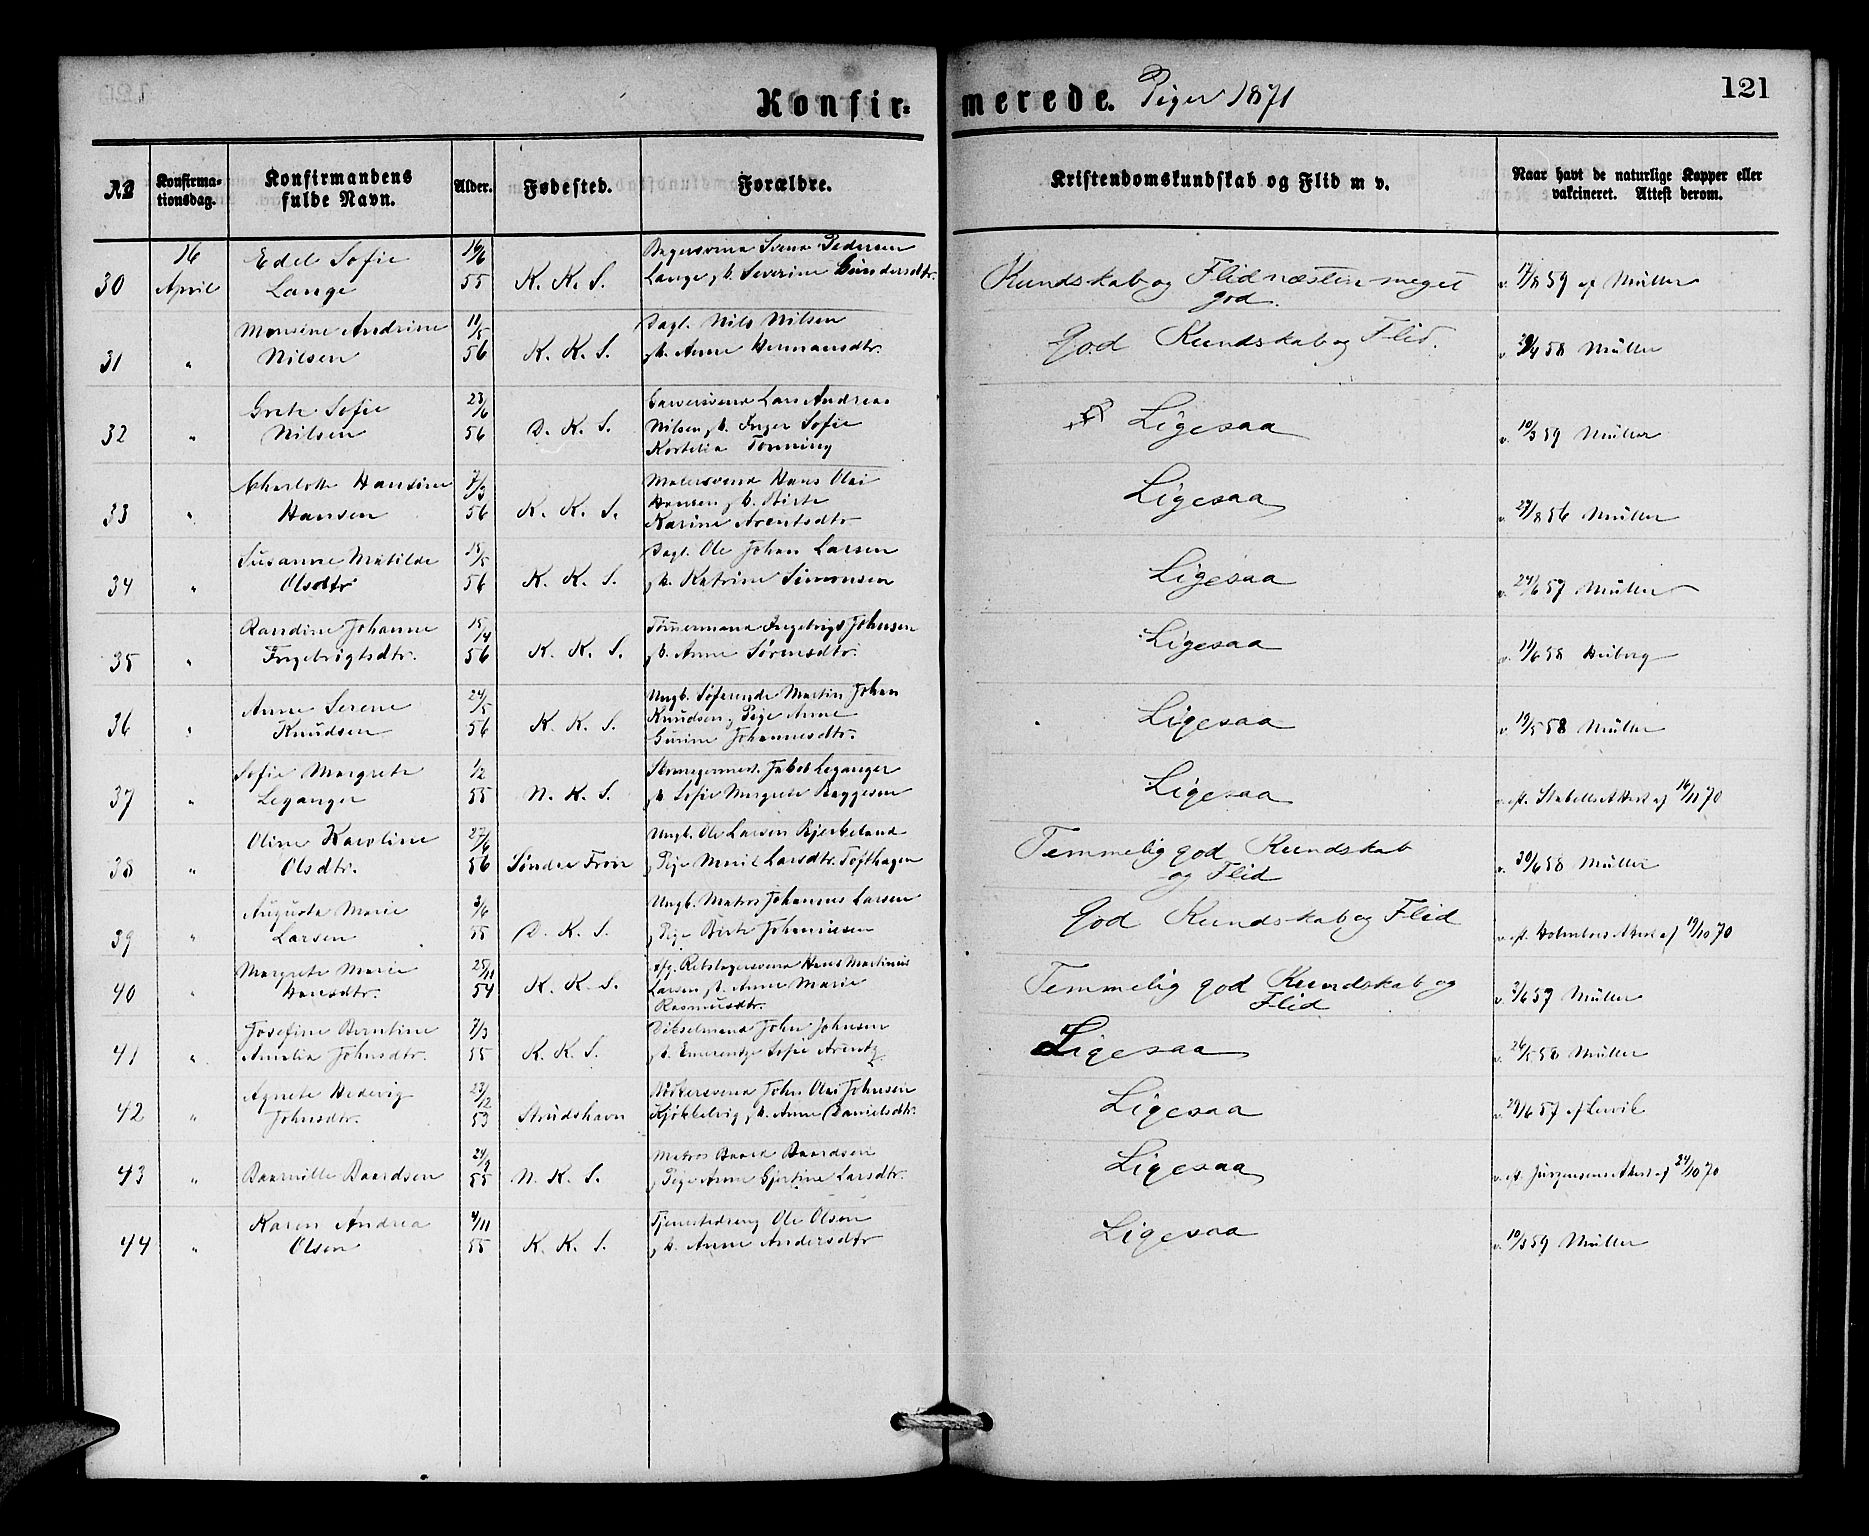 Konfirmerede. Piger 1871
121
No
Konfirma=
tionsdag.
Konfirmandens
fulde Navn.
Alder.
Fødested.
Forældre.
Kristendomskundskab og Flid m v.
Naar havt de naturlige Kopper eller
vakcineret. Attest derom.
30 16 April Edel Sofie Lange 55 K. K. S. Svend Pedersen
Lange, h. Severine Gundersdtr. Kundskab og Flid næsten meget god. v. 17/8 59 af Müller
31 " Monsine Andrine Nilsen 11/5 56 K. K. S. Dagl. Nils Nilsen
h. Anne Hermansdtr. God Kundskab og Flid. 58 Müller
32 " Grete Sofie Nilsen 23/6 56 D. K. S. Garversvend Lars Andreas
Nilsen, h. Inger Sofie
Tønning Ligesaa v. 10/3 59 Müller
33 " Charlotte Hansine Hansen 7/3 56 K. K. S. Malersvend Hans Olai
Hansen, h. Birte
Karine Arentsdtr Ligesaa 56 Müller
34 " Susanne Matilde Olsdtr 15/5 56 K. K. S. Dagl. Ole Johan Larsen
h. Katrine Simonsen Ligesaa v. 24/6 57 Müller
35 " Randine Johanne Ingebrigtsdtr. 15/4 56 K. K. S. Tømmermand Ingebrigt Johnsen
h. Anne Sørensdtr Ligesaa 58 Heiberg
36 " Anne Serene Knudsen 24/5 56 K. K. S. Ungk. Søfarende Martin Johan
Knudsen, Pige Anne
Gurine Johannesdtr. Ligesaa v. 19/5 58 Müller
37 " Sofie Margrete Leganger 1/2 55 N. K. S. Jakob Leganger
h. Sofie Margrete Baggesen Ligesaa v. eft. Attest af 16/11 70
38 " Oline Karoline Olsdtr. 27/6 56 Søndre Froin Ungk. Ole Larsen Bjerkeland
Pige Marit Larsdtr. Tofthagen Temmelig god Kundskab
og Flid v. 30/6 58 Müller
39 " Augusta Marie Larsen 3/6 55 D. K. S. Ungk. Matros Johannes Larsen
Pige Birte Johannesen God Kundskab og Flid v. eft. Holmboes Attest af 19/10 70
40 " Margrete Marie Hansdtr. 25/11 54 K. K. S. Afg. Rebslagersvend Hans Martinus
Larsen, h. Anne Marie
Rasmusdtr. Temmelig god Kundskab og
Flid v. 2/6 57 Müller
41 " Josefine Berntine
Amalia Johnsdtr. 7/3 55 K. K. S. John Johnsen
h. Emerentze Sofie Arentz Ligesaa v. 26/5 58 Müller
42 " Agnete Hedevig
Johnsdtr. 53 Strudshavn Bøkersvend John Olai Johnsen
Kjøkkelvig, h. Anne Danielsdtr. Ligesaa v. 29/6 57 af
43 " Baardsen 24/9 55 N. K. S. Matros Baard Baardsen
Pige Anne Gjertine Larsdtr. Ligesaa v. eft. Jürgensens Attest af 24/10 70
44 " Karen Andrea
Olsen 4/11 55 K. K. S. Tjenestedreng Ole Olsen
h. Anne Andersdtr Ligesaa v. 10/3 59 Müller